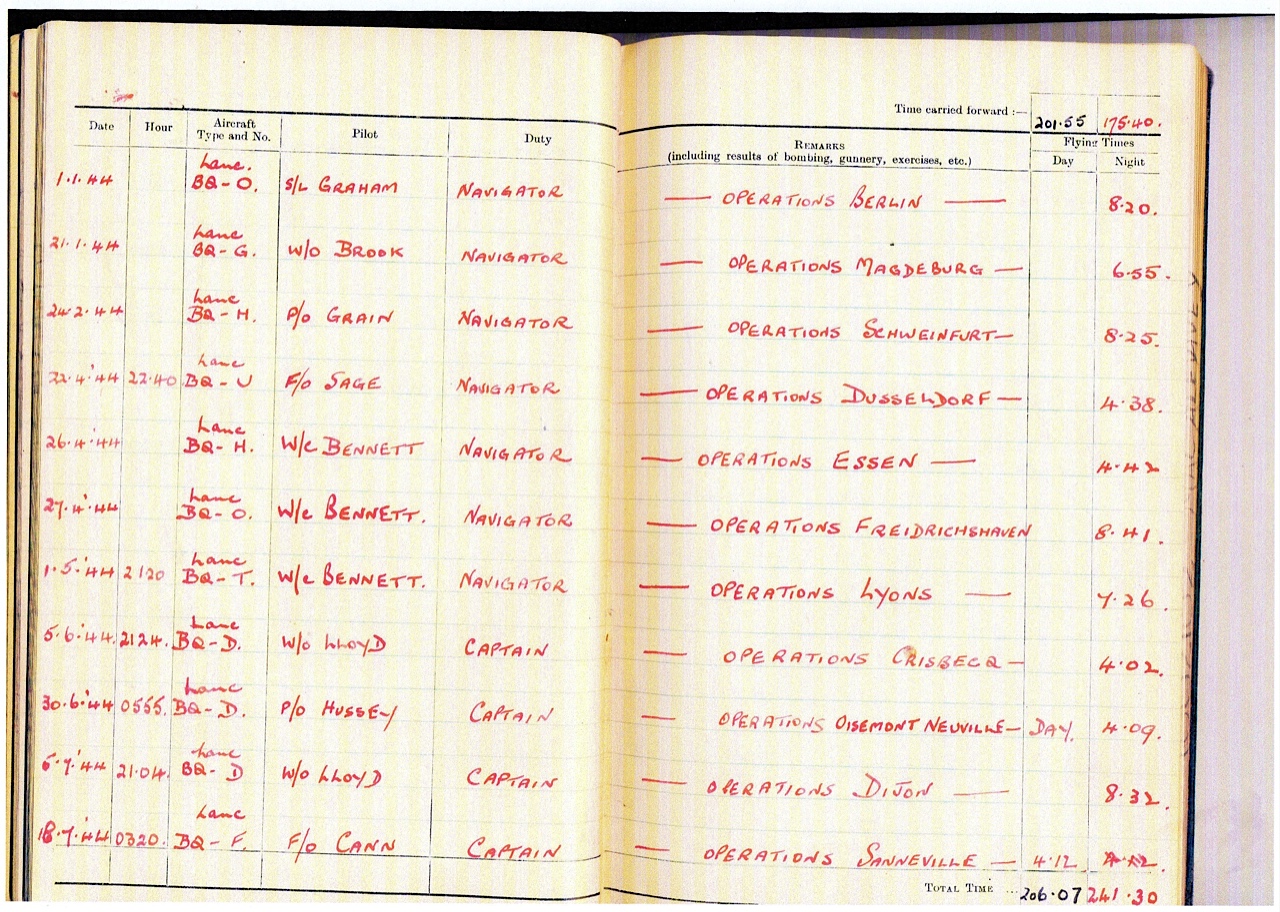 Time carried forward :— 201·55 175·40.
Date Hour Aircraft Type and No. Pilot Duty REMARKS (including results of bombing, gunnery, exercises, etc.) Flying Times Day Night
1.1.44 Lanc. BQ-O. S/L GRAHAM NAVIGATOR — OPERATIONS BERLIN — 8·20.
21.1.44 Lanc BQ-G. W/O BROOK NAVIGATOR — OPERATIONS MAGDEBURG — 6·55.
24.2.44 Lanc BQ-H. P/O GRAIN NAVIGATOR — OPERATIONS SCHWEINFURT — 8·25.
22.4.44 22.40 Lanc BQ-U F/O SAGE NAVIGATOR — OPERATIONS DUSSELDORF — 4·38.
26.4.44 Lanc BQ-H. W/C BENNETT NAVIGATOR — OPERATIONS ESSEN — 4·42
27.4.44 Lanc BQ-O. W/C BENNETT. NAVIGATOR — OPERATIONS FREIDRICHSHAVEN 8·41.
1.5.44 2120 Lanc BQ-T. W/C BENNETT. NAVIGATOR — OPERATIONS LYONS — 7·26.
5.6.44. 2124. Lanc BQ-D. W/O LLOYD CAPTAIN — OPERATIONS CRISBECQ — 4·02.
30.6.44 0555. Lanc BQ-D. P/O HUSSEY CAPTAIN — OPERATIONS OISEMONT NEUVILLE — DAY. 4·09.
5.7.44 21.04. Lanc BQ-D W/O LLOYD CAPTAIN — OPERATIONS DIJON — 8·32.
18.7.44 0320. Lanc BQ-F. F/O CANN CAPTAIN — OPERATIONS SANNEVILLE — 4·12 4·12
TOTAL TIME ... 206·07 241·30